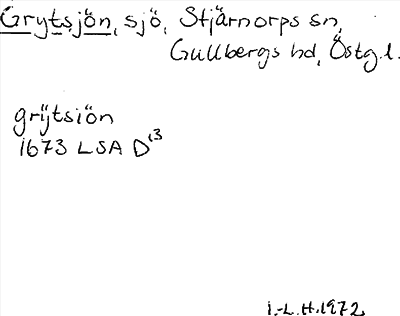 Grytsjön, sjö, Stjärnorps sn,
Gullbergs hd, Östg.l.
grÿtsiön
1673 LSA D¹3
I.-L.H. 1972